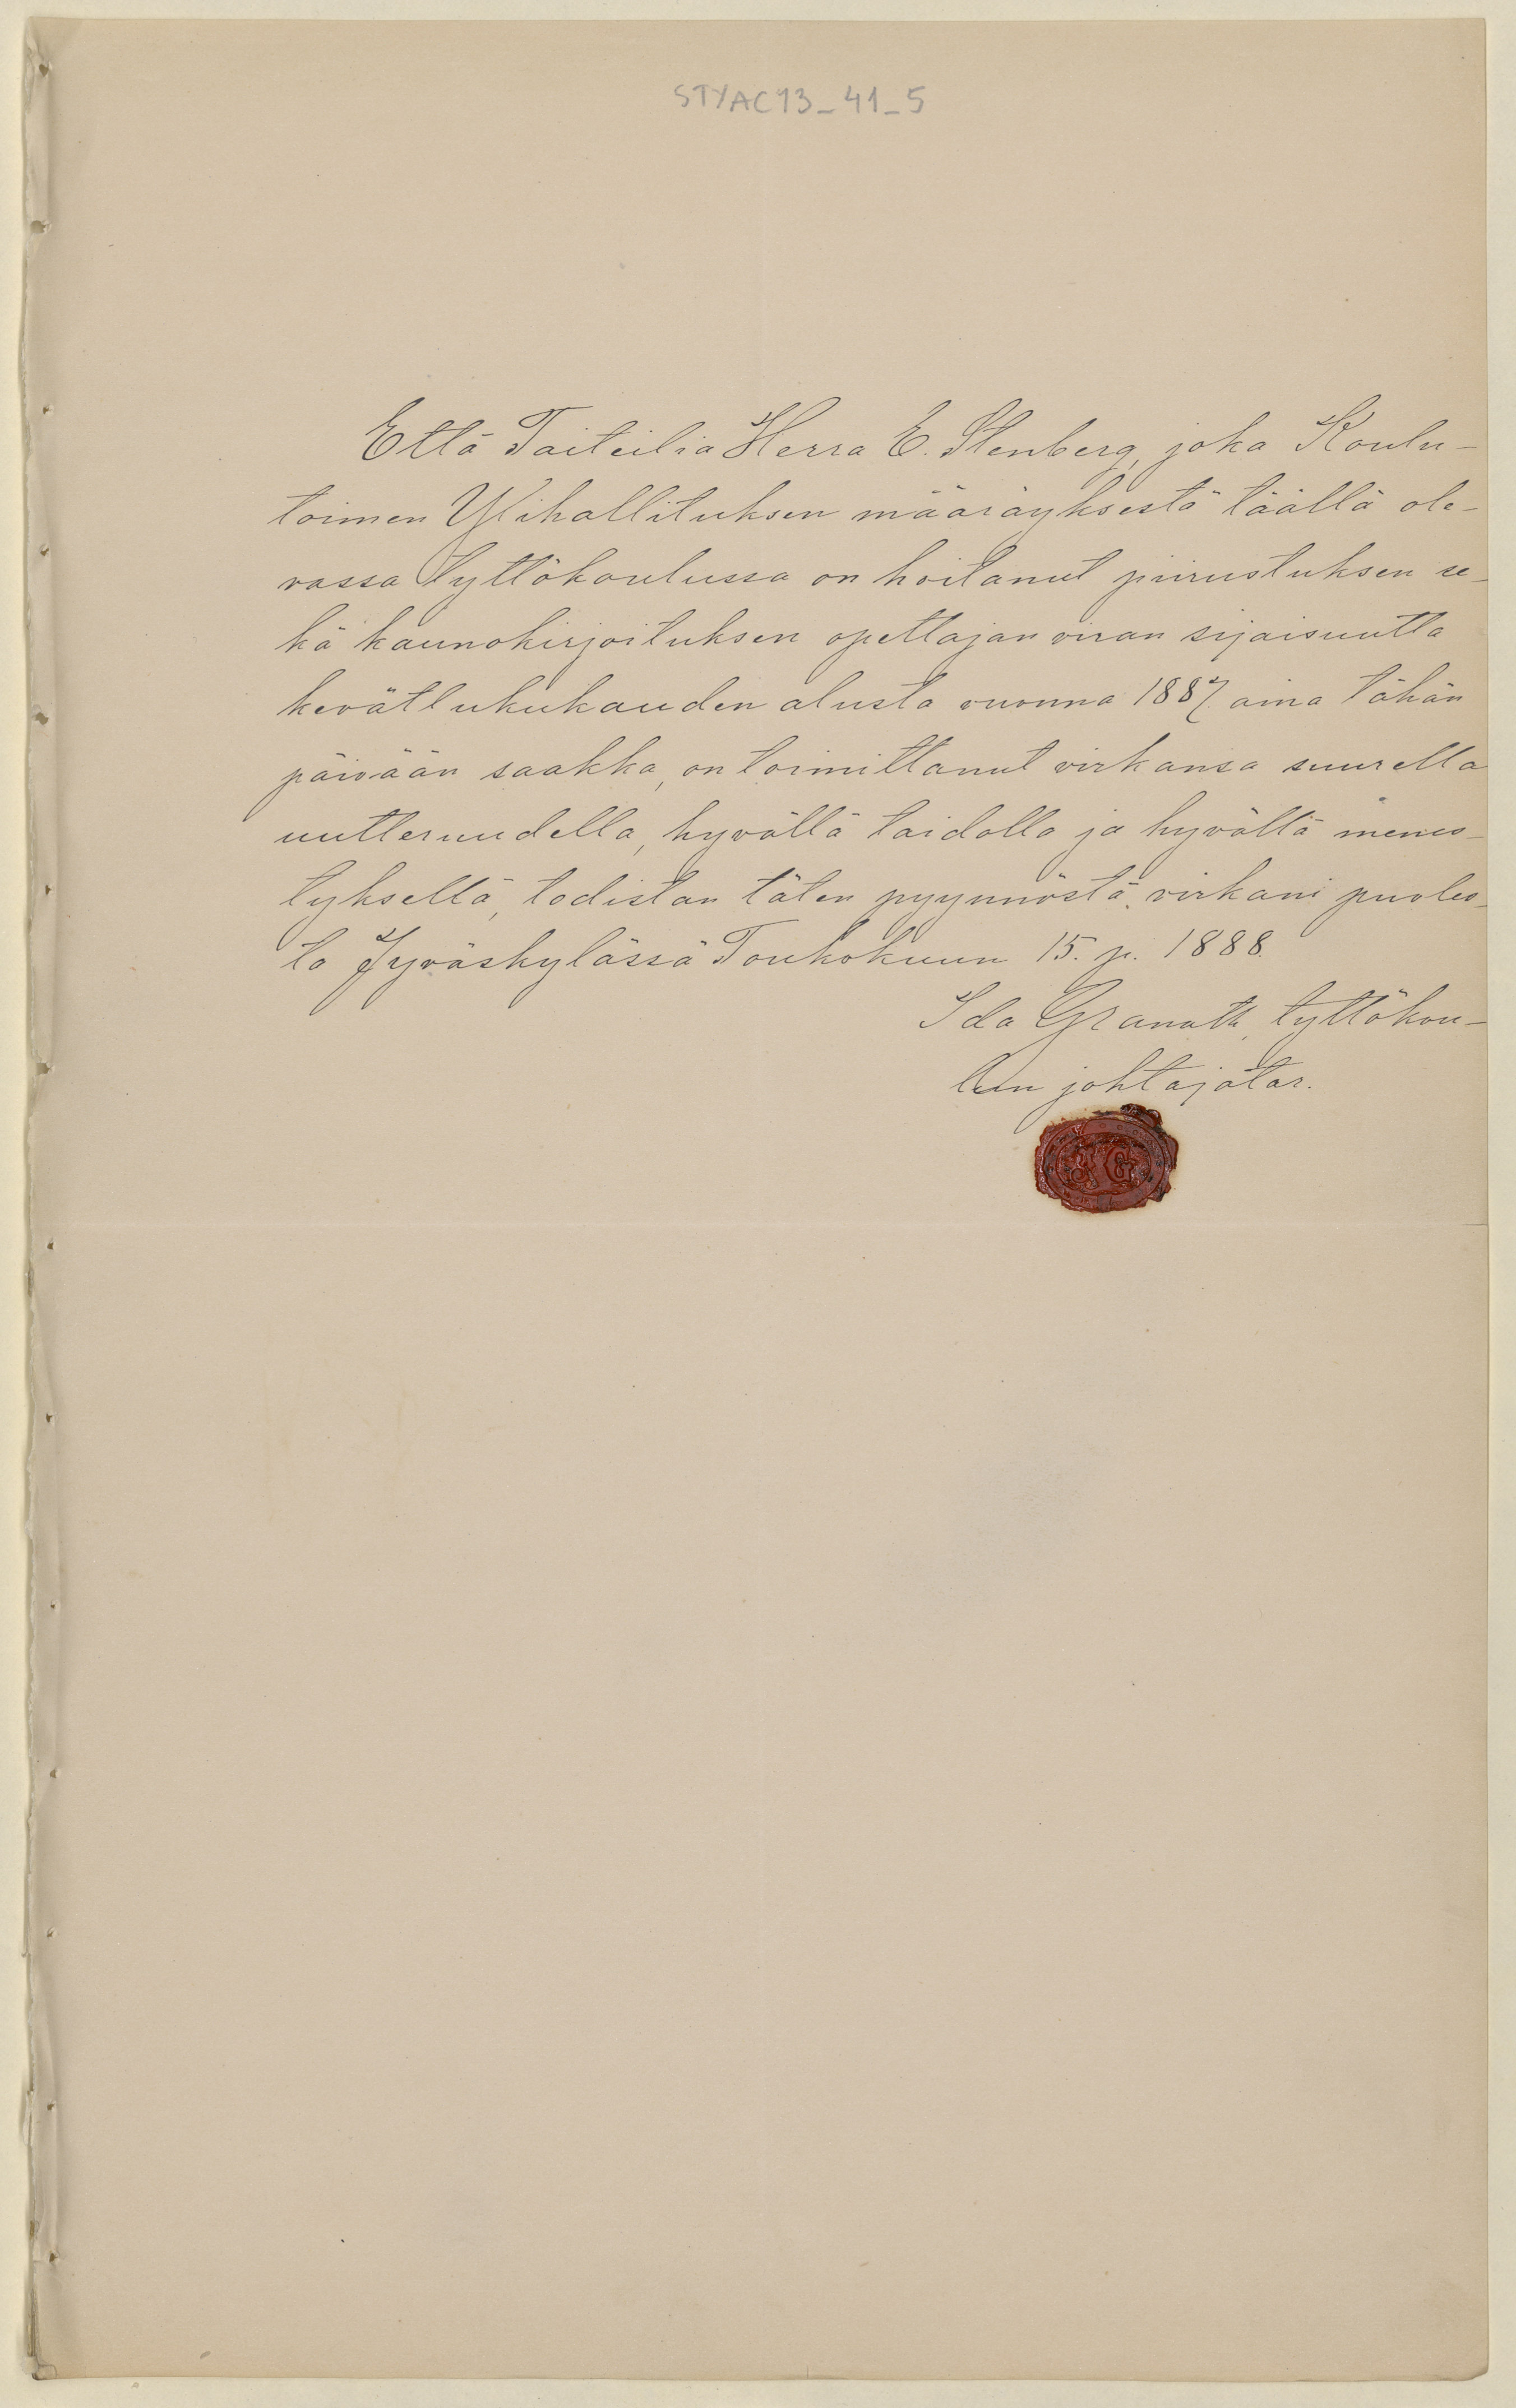 STYAC13_41_5
Että Taiteilia Herra E. Stenberg, joka Koulu-
toimen Ylihallituksen määräyksestä täällä ole-
vassa tyttökoulussa on hoitanut piirustuksen se-
kä kaunokirjoituksen opettajan viran sijaisuutta
kevätlukukauden alusta vuonna 1887 aina tähän
päivään saakka, on toimittanut virkansa suurella
uutteruudella, hyvällä taidolla ja hyvällä menes-
tyksellä, todistan täten pyynnöstä virkani puoles-
ta Jyväskylässä Toukokuun 15. p. 1888.
Ida Granath, tyttökou-
lun johtajatar.
IG